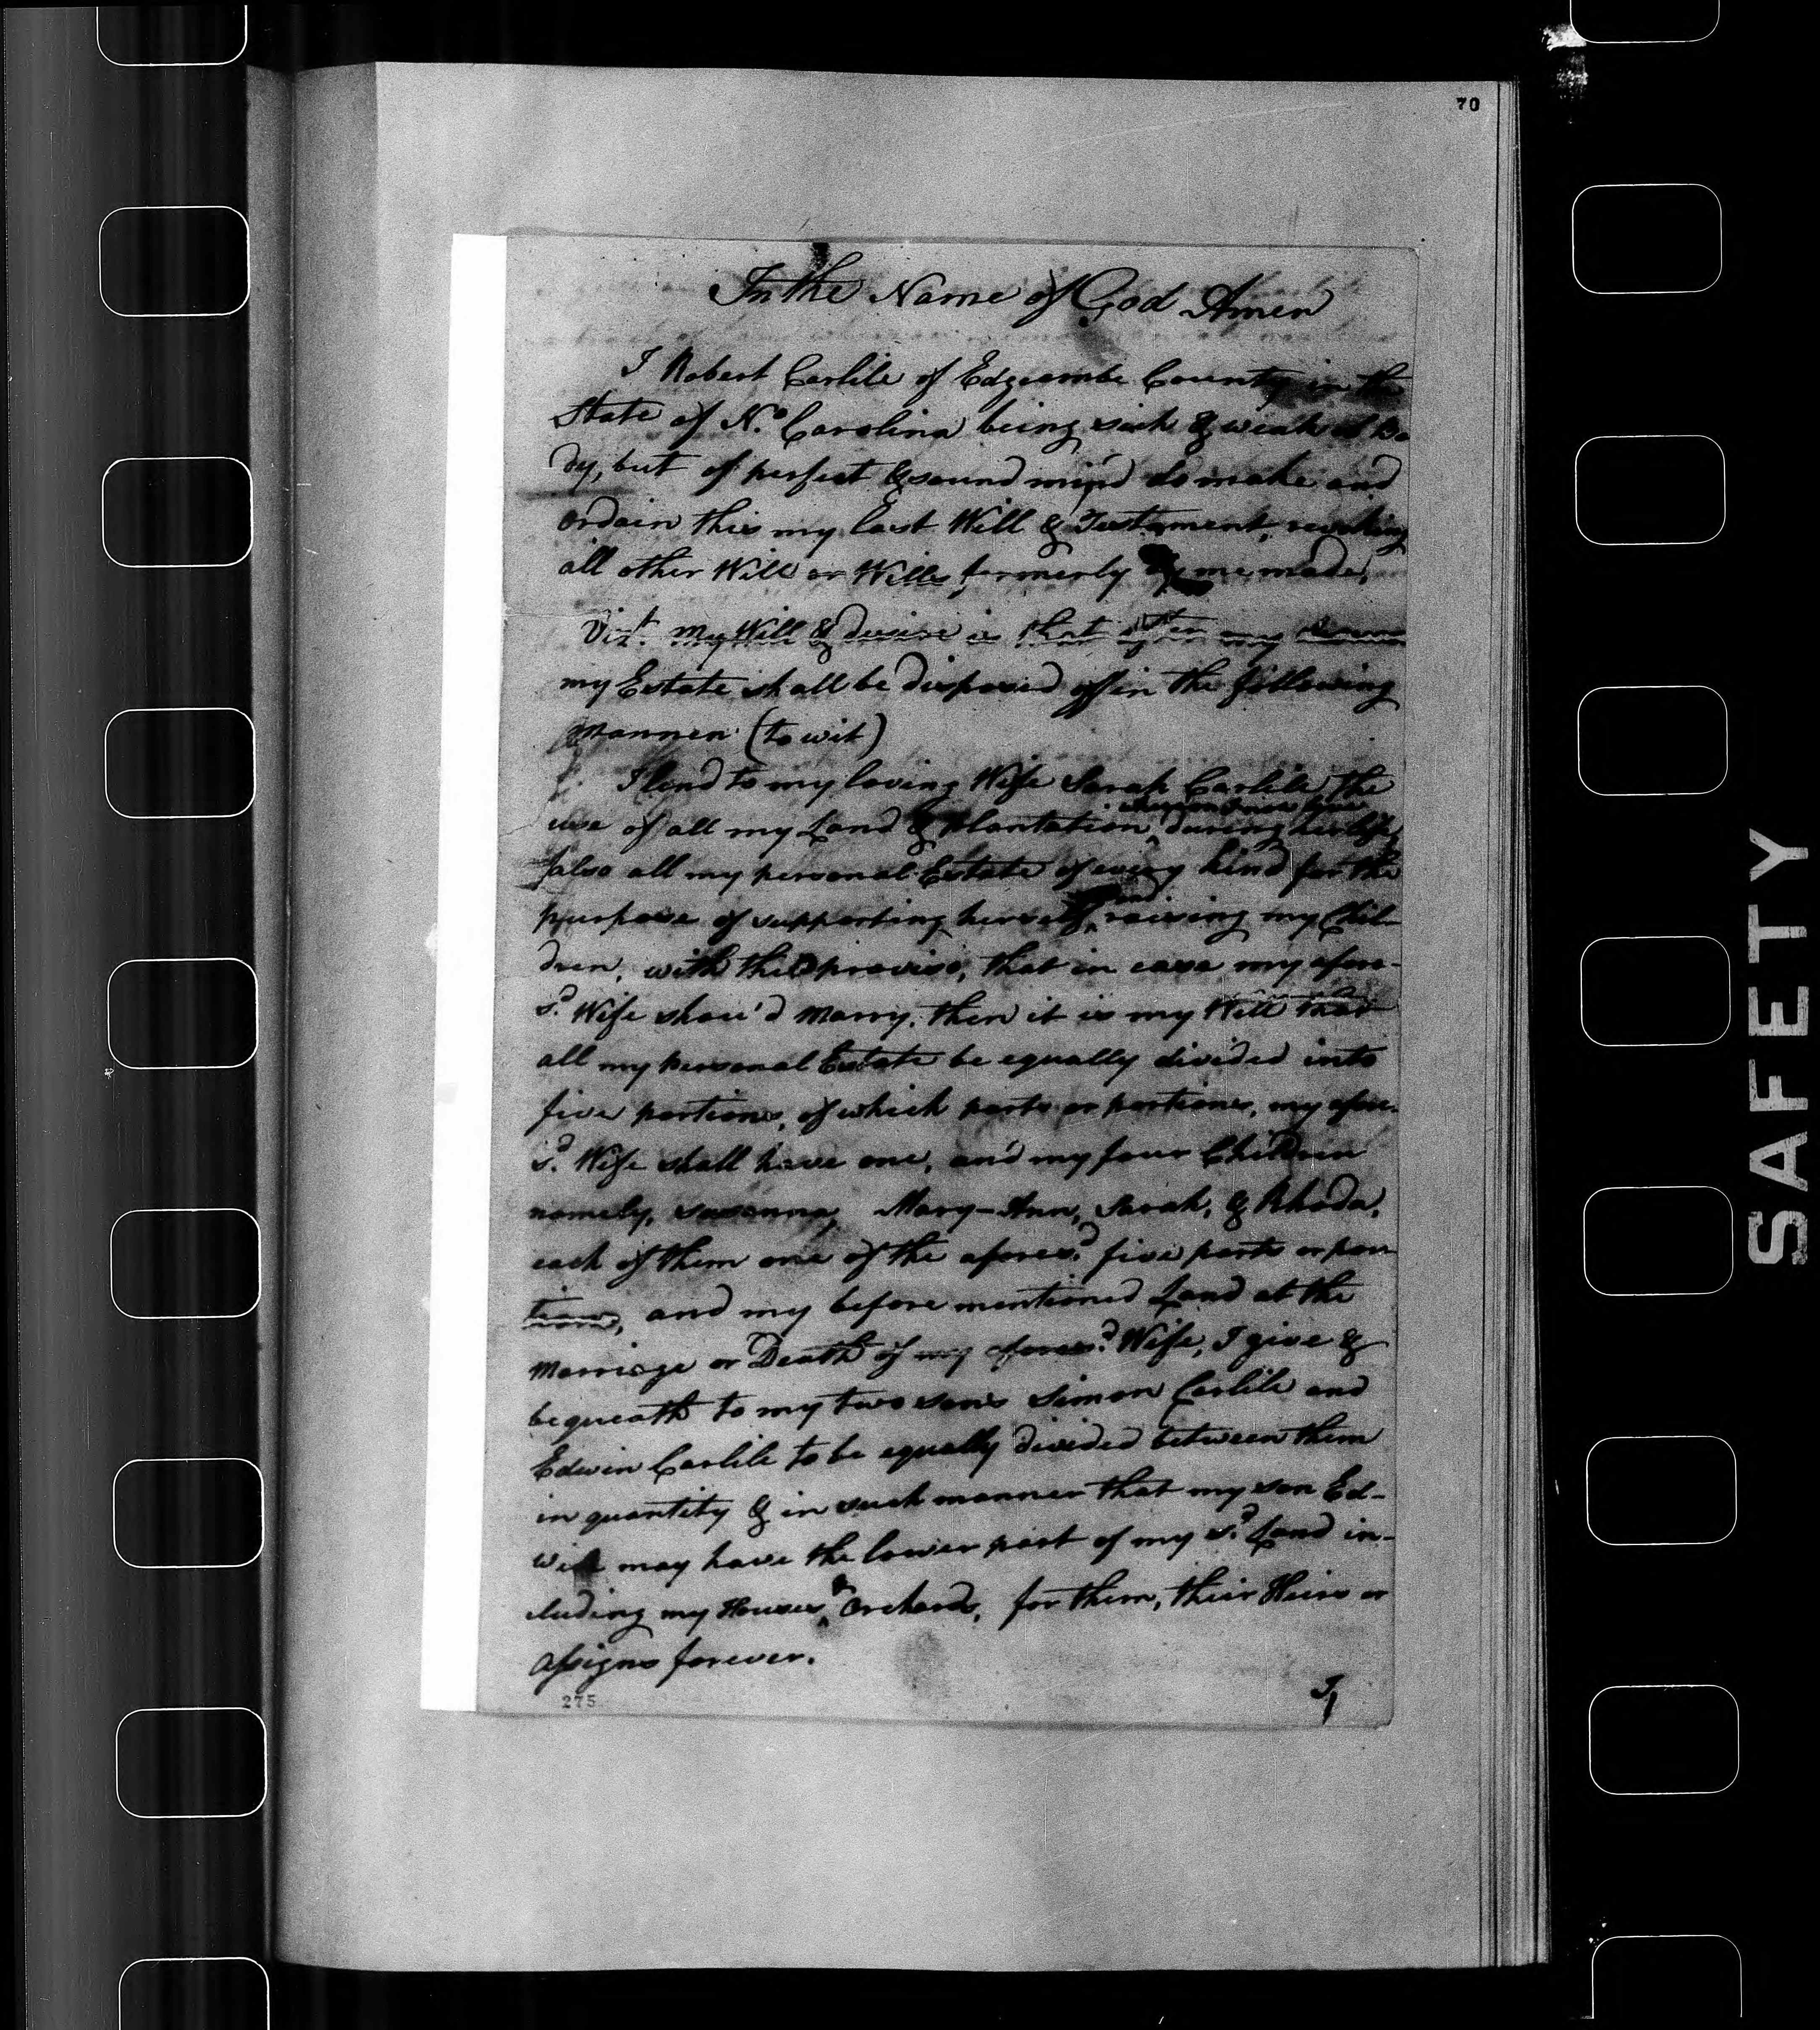 70
In the Name of God Amen
I Robert Carlile of Edgecombe County in the
State of N.o Carolina being sick & weak of Bo
dy, but of perfect & sound mind do make and
ordain this my last Will & Testament, revoking
all other Will or Wills, formerly by me made,
Vizt. My Will & desire is that after my
my Estate shall be disposed off in the following
Manner (to wit)
I lend to my loving Wife Sarah Carlile the
whereon I now live
use of all my Land & Plantation, during her life
also all my personal Estate of every kind for the
and
purpose of supporting herself, raising my Chil-
dren, with this proviso, that in case my afore-
sd. Wife shou'd Marry, then it is my Will that
all my personal Estate be equally divided into
five portions, of which parts or portions, my afore-
sd. Wife shall have one, and my four Children
namely, Susanna, Mary-Ann, Sarah, & Rhoda,
each of them one of the aforesd. five parts or por-
tions, and my before mentioned Land at the
Marriage or Death of my aforesd. Wife, I give &
bequeath to my two sons Simon Carlile and
Edwin Carlile to be equally divided between them
in quantity & in such manner that my son Ed-
win may have the lower part of my sd. Land in-
cluding my Houses, & Orchards, for them, their Heirs or
assigns forever.
275
I
SAFETY